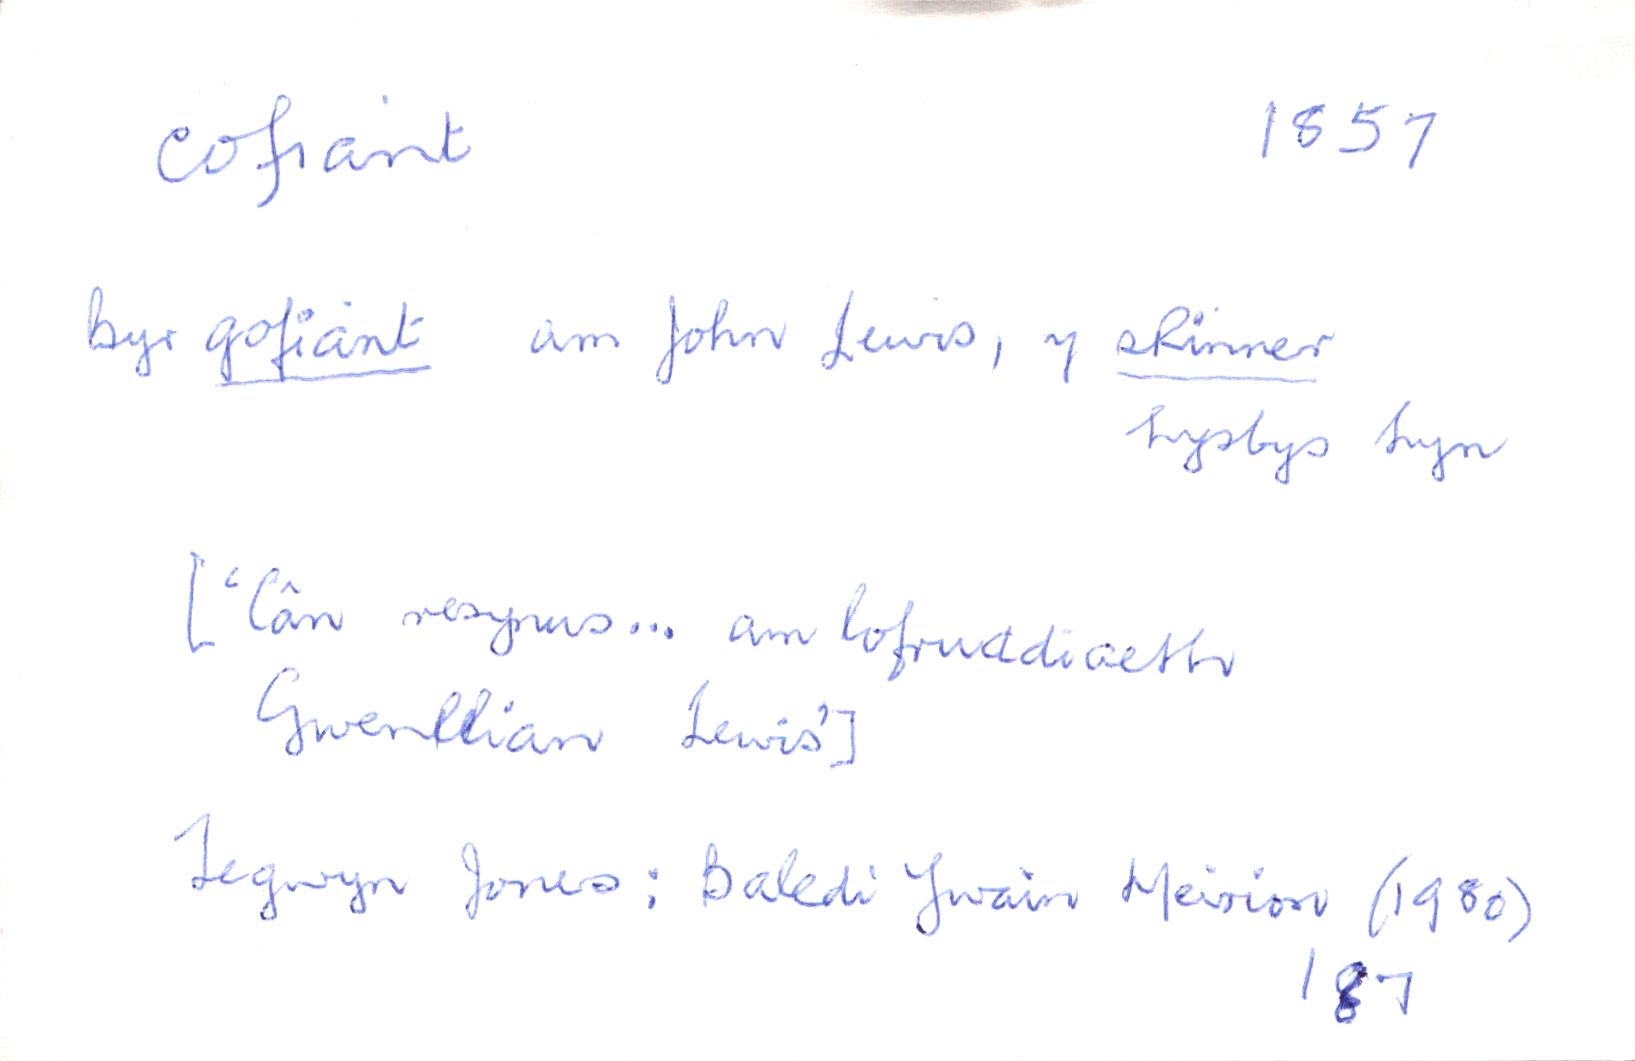 cofiant 1857
byr gofiant am John Lewis, y skinner
hysbys hyn
['Cân resynus... am lofruddiaeth
Gwenllian Lewis']
Tegwyn Jones: Baledi Ywain Meirion (1980)
187